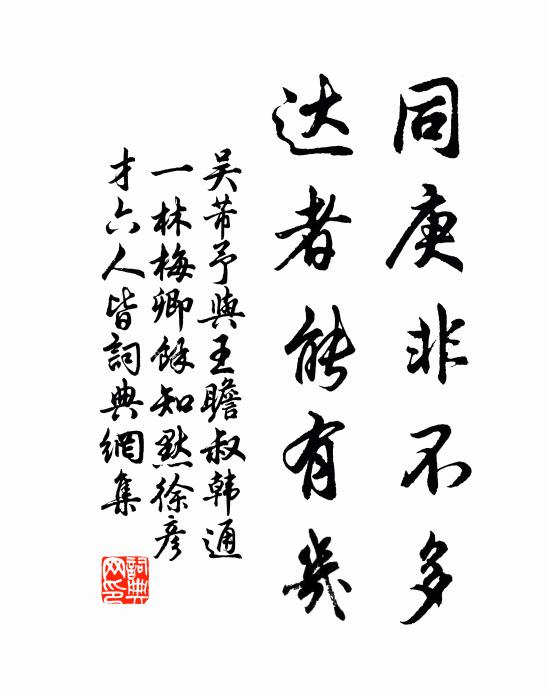 同庚非不多
达者能有幾
吴芾予與王瞻叔韩通
一林梅卿餘知默徐彦
才六人皆詞典網集
詞典网印